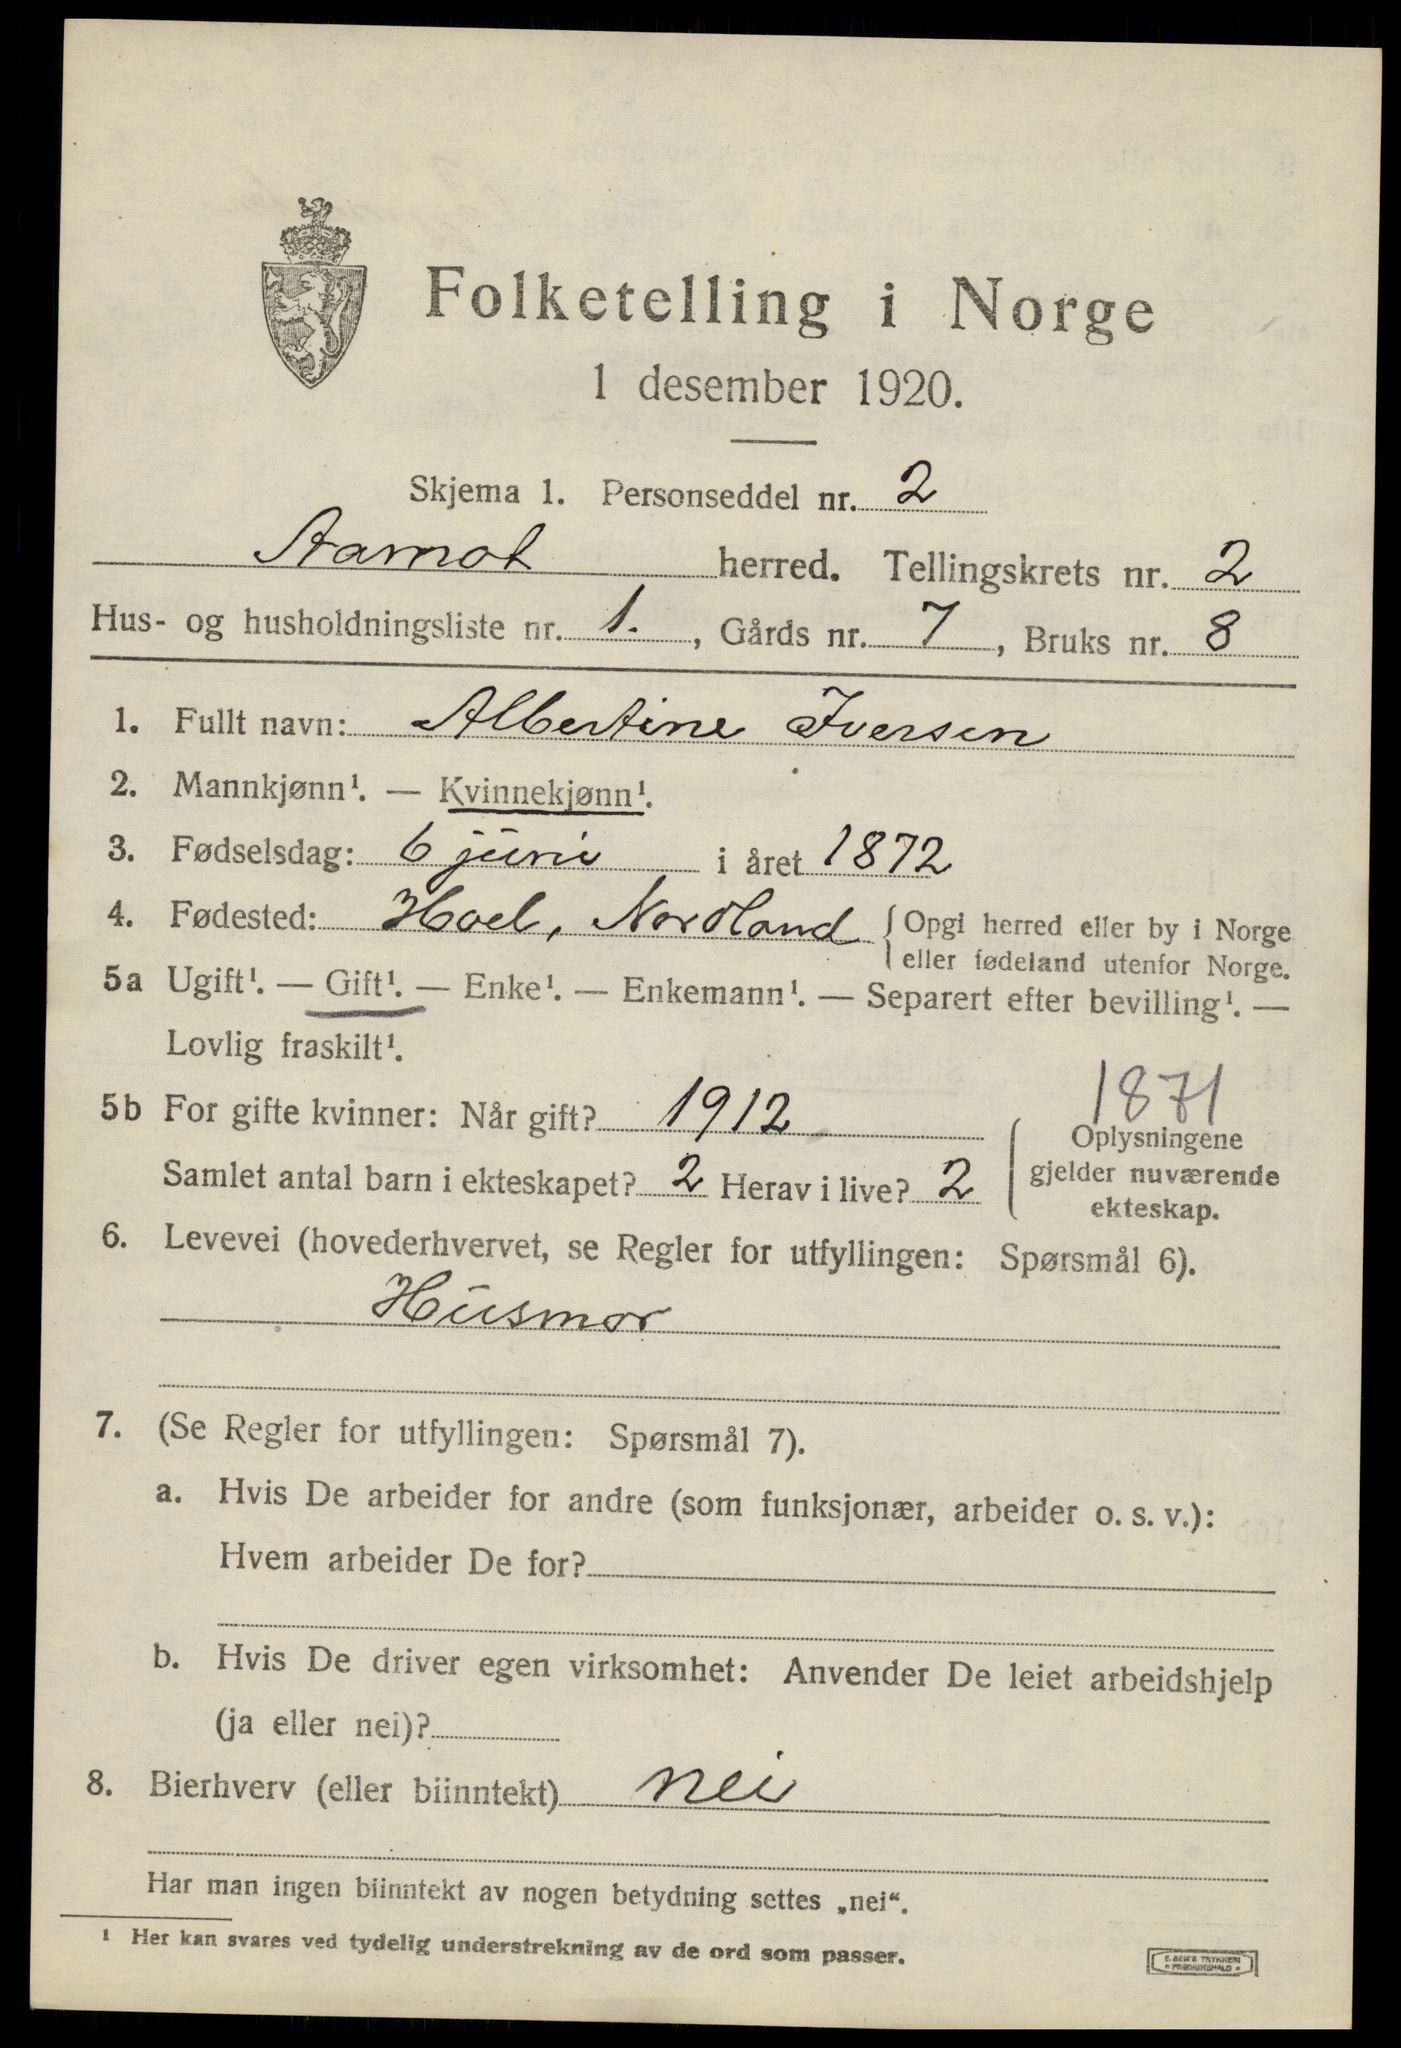 Folketelling i Norge
1 desember 1920.
Skjema 1. Personseddel nr. 2
Aamot herred. Tellingskrets nr. 2
Hus- og husholdningsliste nr. 1., Gårds nr. 7, Bruks nr. 8
1. Fullt navn: Albertine Iversen
2. Mannkjønn¹. — Kvinnekjønn¹.
3. Fødselsdag: 6 juni i året 1872
4. Fødested: Hoel, Nordland { Opgi herred eller by i Norge
eller fødeland utenfor Norge.
5a Ugift¹. — Gift¹. — Enke¹. — Enkemann¹. — Separert efter bevilling¹. —
Lovlig fraskilt¹.
1871
5b For gifte kvinner: Når gift? 1912
Samlet antal barn i ekteskapet? 2 Herav i live? 2
Oplysningene
gjelder nuværende
ekteskap.
6. Levevei (hovederhvervet, se Regler for utfyllingen: Spørsmål 6).
Husmor
7. (Se Regler for utfyllingen: Spørsmål 7).
a. Hvis De arbeider for andre (som funksjonær, arbeider o. s. v.):
Hvem arbeider De for?
b. Hvis De driver egen virksomhet: Anvender De leiet arbeidshjelp
(ja eller nei)?
8. Bierhverv (eller biinntekt) nei
Har man ingen biinntekt av nogen betydning settes „nei“.
¹ Her kan svares ved tydelig understrekning av de ord som passer.